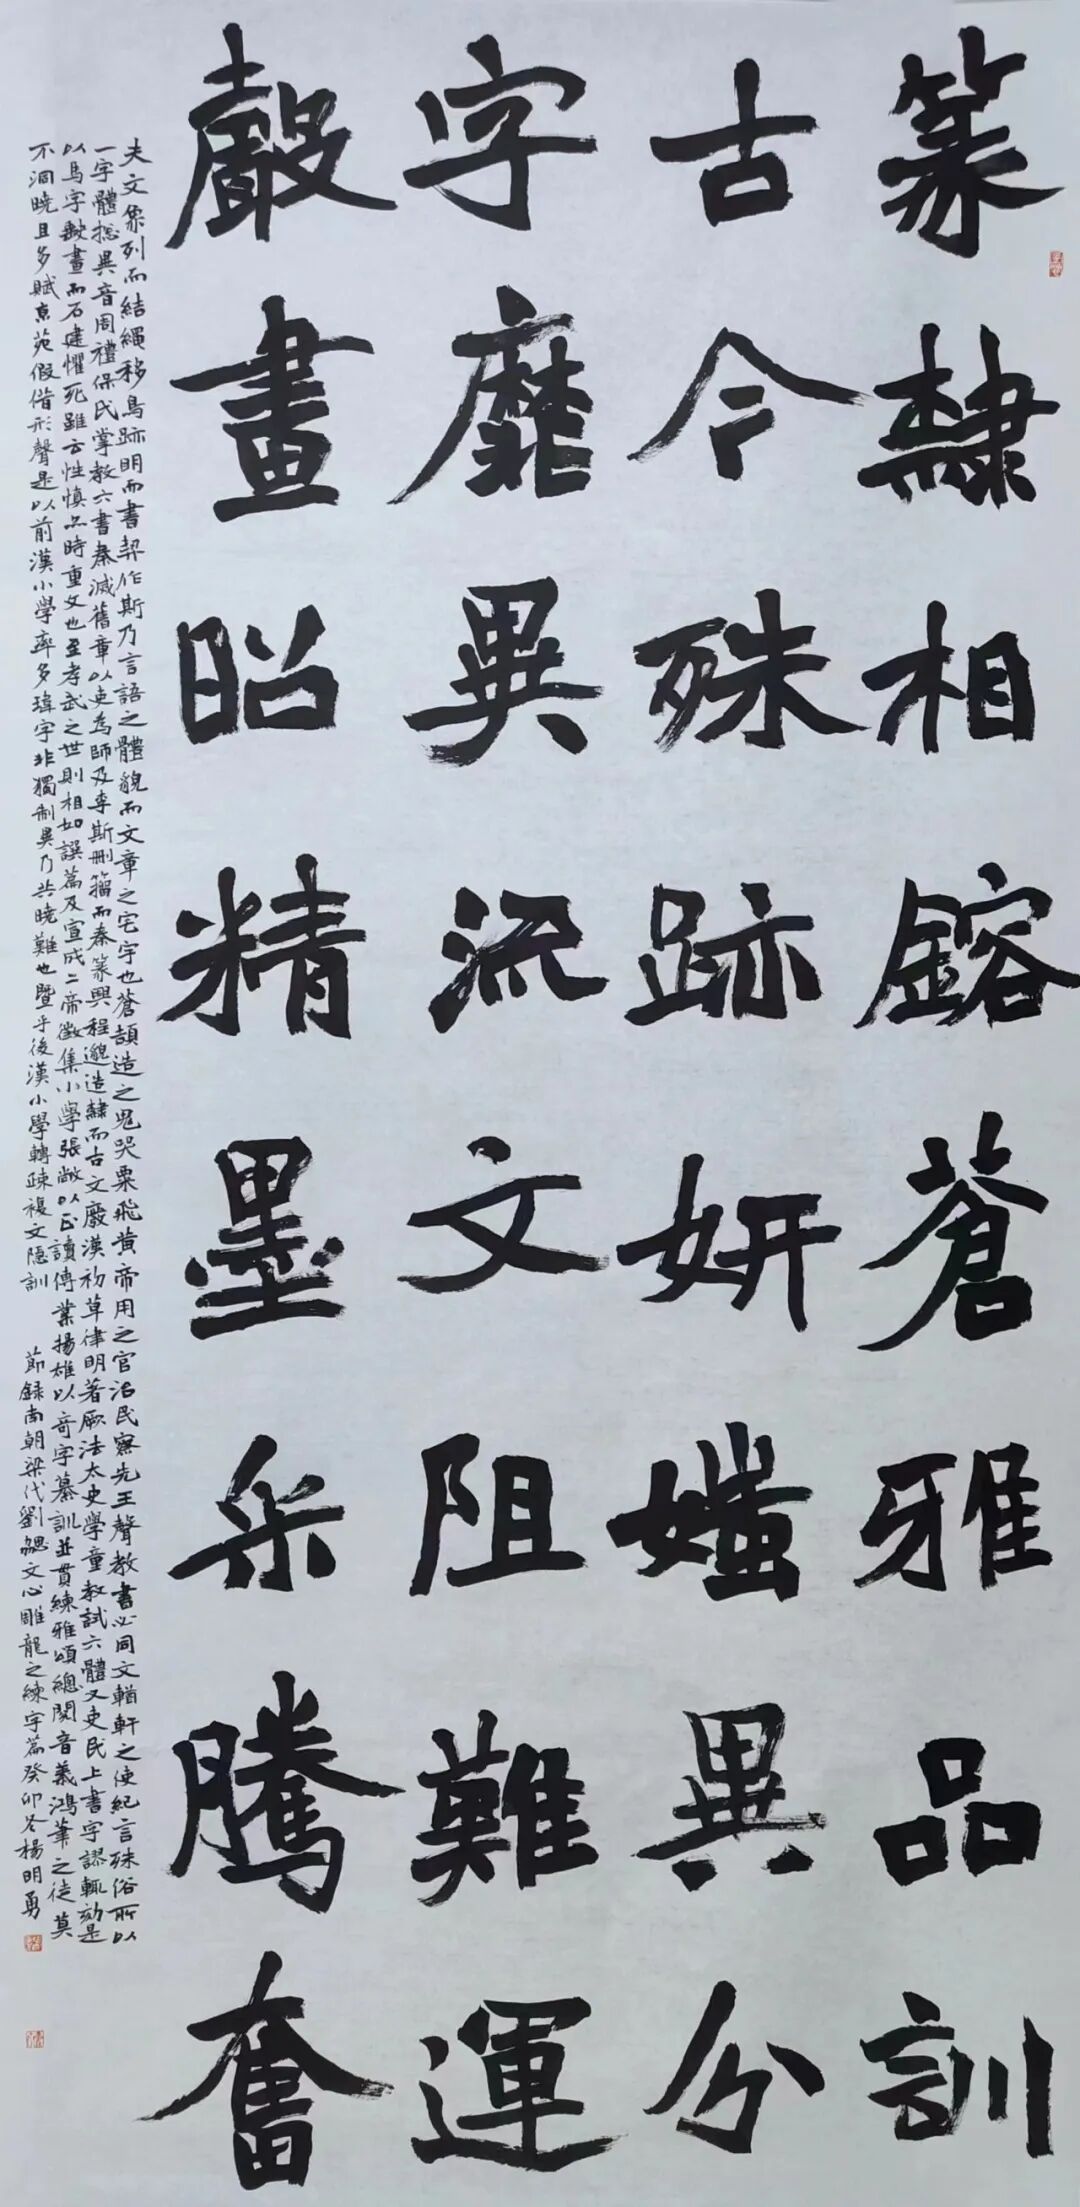 篆隸相鎔蒼雅品訓
古今殊跡妍媸異分
字靡異流文阻難運
聲畫昭精墨采騰奮
夫文象列而結繩移鳥跡明而書契作斯乃言語之體貌而文章之宅宇也蒼頡造之鬼哭粟飛黃帝用之官治民察先王聲教書必同文輶軒之使紀言殊俗所以
一字體摠異音周禮保氏掌教六書秦滅舊章以吏為師及李斯刪籀而秦篆興程邈造隸而古文廢漢初草律明著厥法太史學童教試六體又吏民上書字謬輒劾是
以馬字缺畫而石建懼死雖云性慎亦時重文也至孝武之世則相如譔篇及宣成二帝徵集小學張敞以正讀傳業揚雄以奇字纂訓並貫練雅頌總閱音義鴻筆之徒莫
不洞曉且多賦京苑假借形聲是以前漢小學率多瑋字非獨制異乃共曉難也暨乎後漢小學轉疎複文隱訓 節錄南朝梁代劉勰文心雕龍之練字篇癸卯冬楊明勇